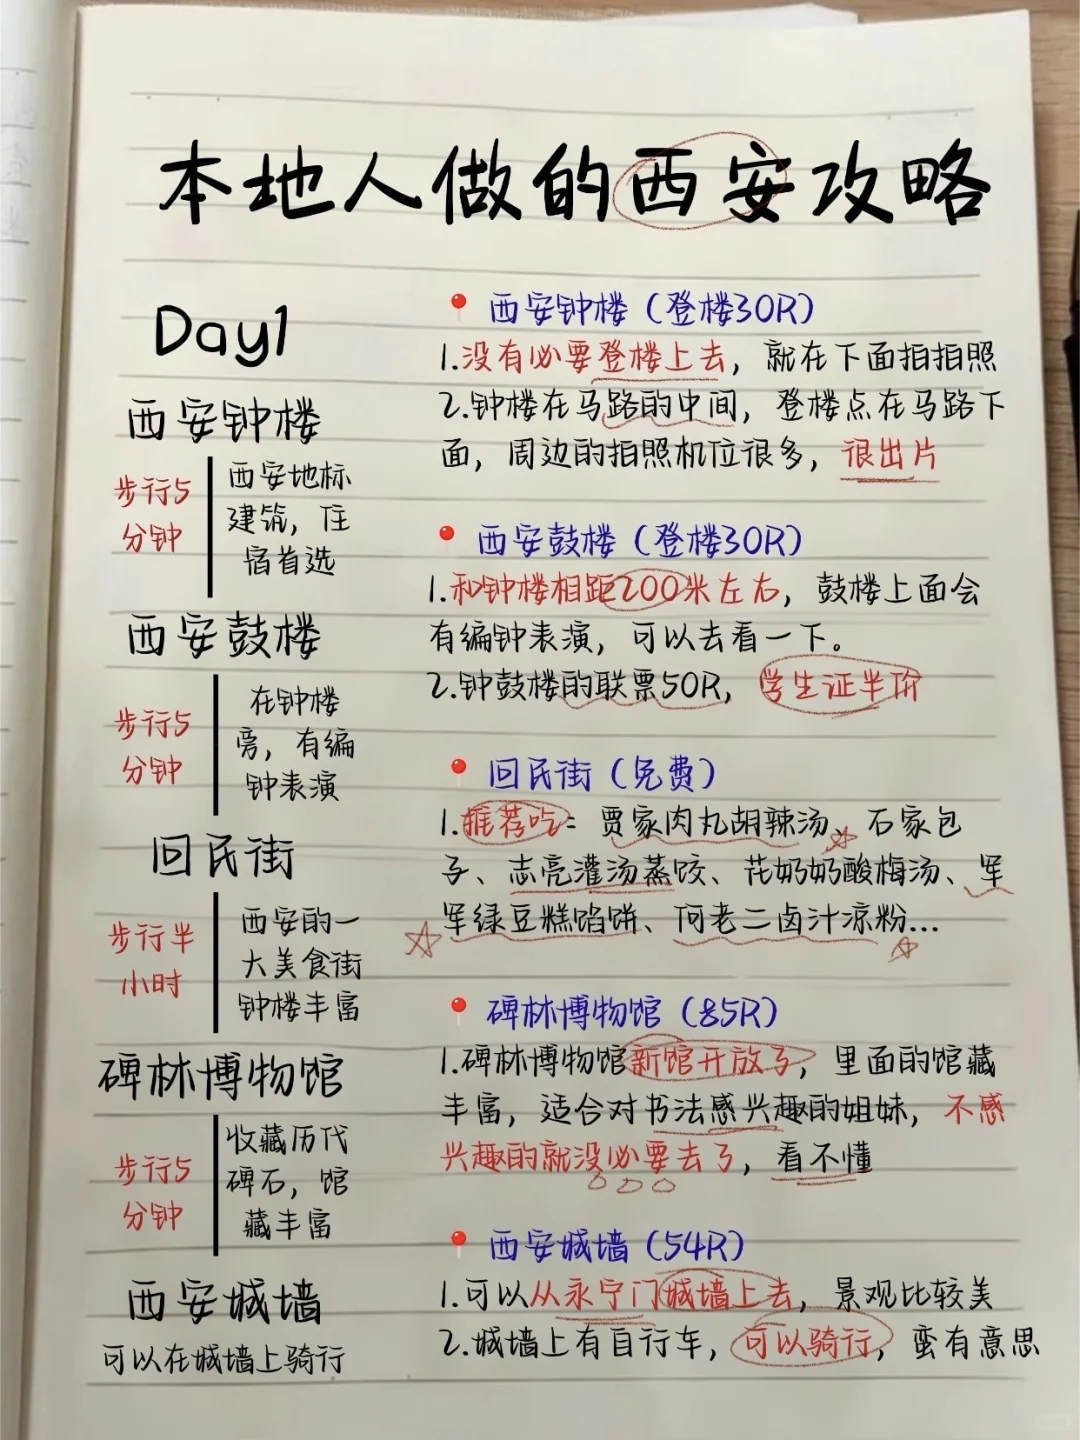 本地人做的西安攻略
Day1
西安钟楼
步行5
分钟
西安地标
建筑，住
宿首选
西安鼓楼
步行5
分钟
在钟楼
旁，有编
钟表演
回民街
步行半
小时
西安的一
大美食街
钟楼丰富
碑林博物馆
步行5
分钟
收藏历代
碑石，馆
藏丰富
西安城墙
可以在城墙上骑行
西安钟楼（登楼30R）
1.没有必要登楼上去，就在下面拍拍照
2.钟楼在马路的中间，登楼点在马路下
面，周边的拍照机位很多，很出片
西安鼓楼（登楼30R）
1.和钟楼相距200米左右，鼓楼上面会
有编钟表演，可以去看一下。
2.钟鼓楼的联票50R，学生证半价
回民街（免费）
1.推荐吃：贾家肉丸胡辣汤、石家包
子、志亮灌汤蒸饺、花奶奶酸梅汤、军
军绿豆糕馅饼、何老二卤汁凉粉...
碑林博物馆（85R）
1.碑林博物馆新馆开放了，里面的馆藏
丰富，适合对书法感兴趣的姐妹，不感
兴趣的就没必要去了，看不懂
西安城墙（54R）
1.可以从永宁门城墙上去，景观比较美
2.城墙上有自行车，可以骑行，蛮有意思